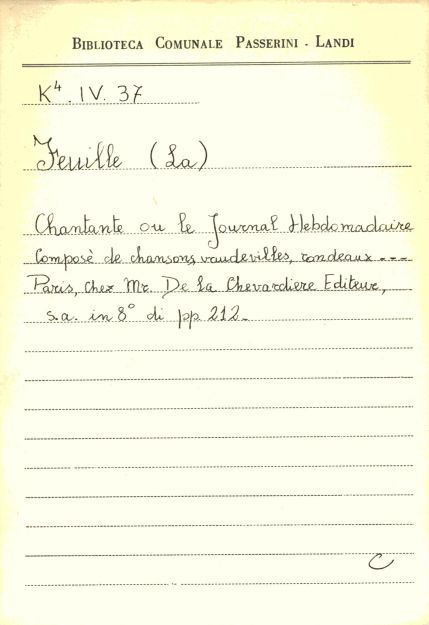 BIBLIOTECA COMUNALE PASSERINI - LANDI
K4. IV. 37
Feuille (La)
Chantante ou le Journal Hebdomadaire
Composè de chansons, vaudevilles, rondeaux ---
Paris, chez Mr. De la Chevardiere Editeur,
s.a. in 8° di pp 212.
C